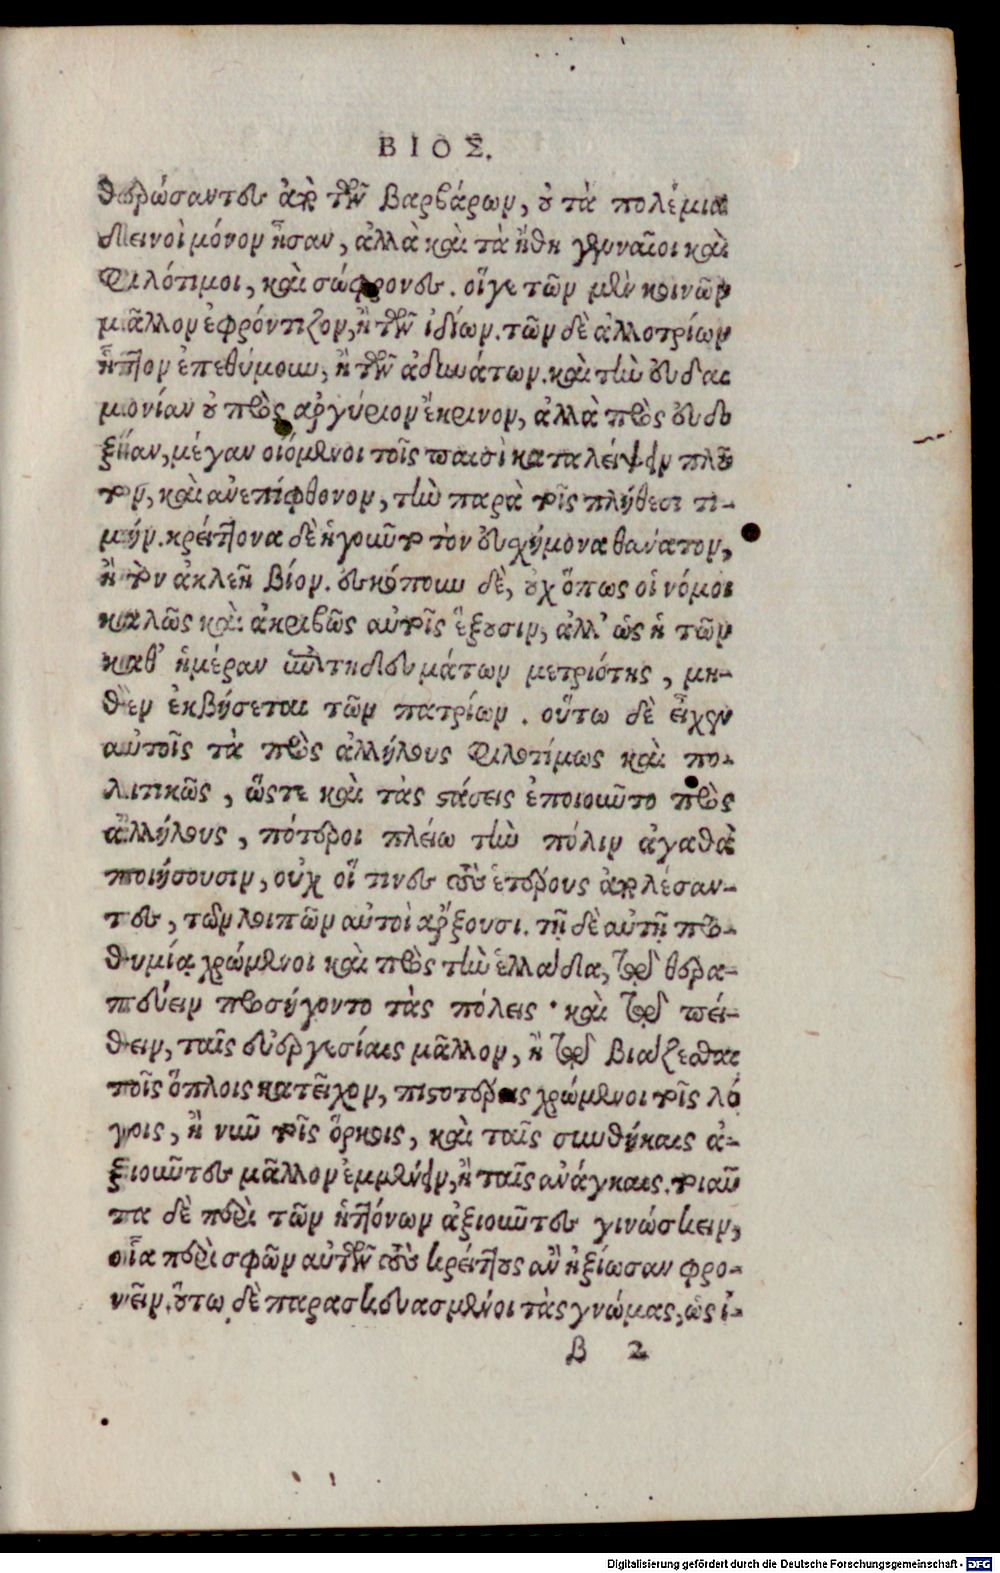 ΒΙΟΣ.
θερώσαντες ἀπὸ τῶν βαρβάρων, οὐ τὰ πολέμια
δεινοὶ μόνον ἦσαν, ἀλλὰ καὶ τὰ ἤθη γενναῖοι καὶ
φιλότιμοι, καὶ σώφρονες. οἵγε τῶν μὲν κοινῶν
μᾶλλον ἐφρόντιζον, ἢ τῶν ἰδίων. τῶν δὲ ἀλλοτρίων
ἧττον ἐπεθύμουν, ἢ τῶν ἀδυνάτων. καὶ τὴν εὐδαι
μονίαν οὐ πρὸς ἀργύριον ἔκρινον, ἀλλὰ πρὸς εὐδο
ξίαν, μέγαν οἰόμενοι τοῖς παισὶ καταλείψειν πλοῦ
τον, καὶ ἀνεπίφθονον, τὴν παρὰ τοῖς πλήθεσι τι-
μήν. κρείττονα δὲ ἡγοῦντο τὸν εὐχήμονα θανάτον,
ἢ τὸν ἀκλεῆ βίον. ἐσκόπουν δὲ, οὐχ ὅπως οἱ νόμοι
καλῶς καὶ ἀκριβῶς αὐτοῖς ἕξουσιν, ἀλλ' ὡς ἡ τῶν
καθ' ἡμέραν ἐπιτηδευμάτων μετριότης, μη-
θὲν ἐκβήσεται τῶν πατρίων. οὕτω δὲ εἶχον
αὐτοῖς τὰ πρὸς ἀλλήλους φιλοτίμως καὶ πο-
λιτικῶς, ὥστε καὶ τὰς στάσεις ἐποιοῦντο πρὸς
ἀλλήλους, πότεροι πλείω τὴν πόλιν ἀγαθὰ
ποιήσουσιν, οὐχ οἵ τινες τοὺς ἑτέρους ἀπολέσαν-
τες, τῶν λοιπῶν αὐτοὶ ἄρξουσι. τῇ δὲ αὐτῇ προ-
θυμίᾳ χρώμενοι καὶ πρὸς τὴν ἑλλάδα, τῷ θερα-
πεύειν προσήγοντο τὰς πόλεις· καὶ τῷ πεί-
θειν, ταῖς εὐεργεσίαις μᾶλλον, ἢ τῷ βιάζεσθαι
τοῖς ὅπλοις κατεῖχον, πιστοτέροις χρώμενοι τοῖς λό
γοις, ἢ νῦν τοῖς ὅρκοις, καὶ ταῖς συνθήκαις ἀ-
ξιοῦντες μᾶλλον ἐμμένειν, ἢ ταῖς ἀνάγκαις. τοιαῦ
τα δὲ περὶ τῶν ἡττόνων ἀξιοῦντες γινώσκειν,
οἷα περὶ σφῶν αὐτῶν τοὺς κρείττους ἂν ἠξίωσαν φρο-
νεῖν. οὕτω δὲ παρασκευασμένοι τὰς γνώμας, ὡς ἰ-
B 2
Digitalisierung gefördert durch die Deutsche Forschungsgemeinschaft - DFG